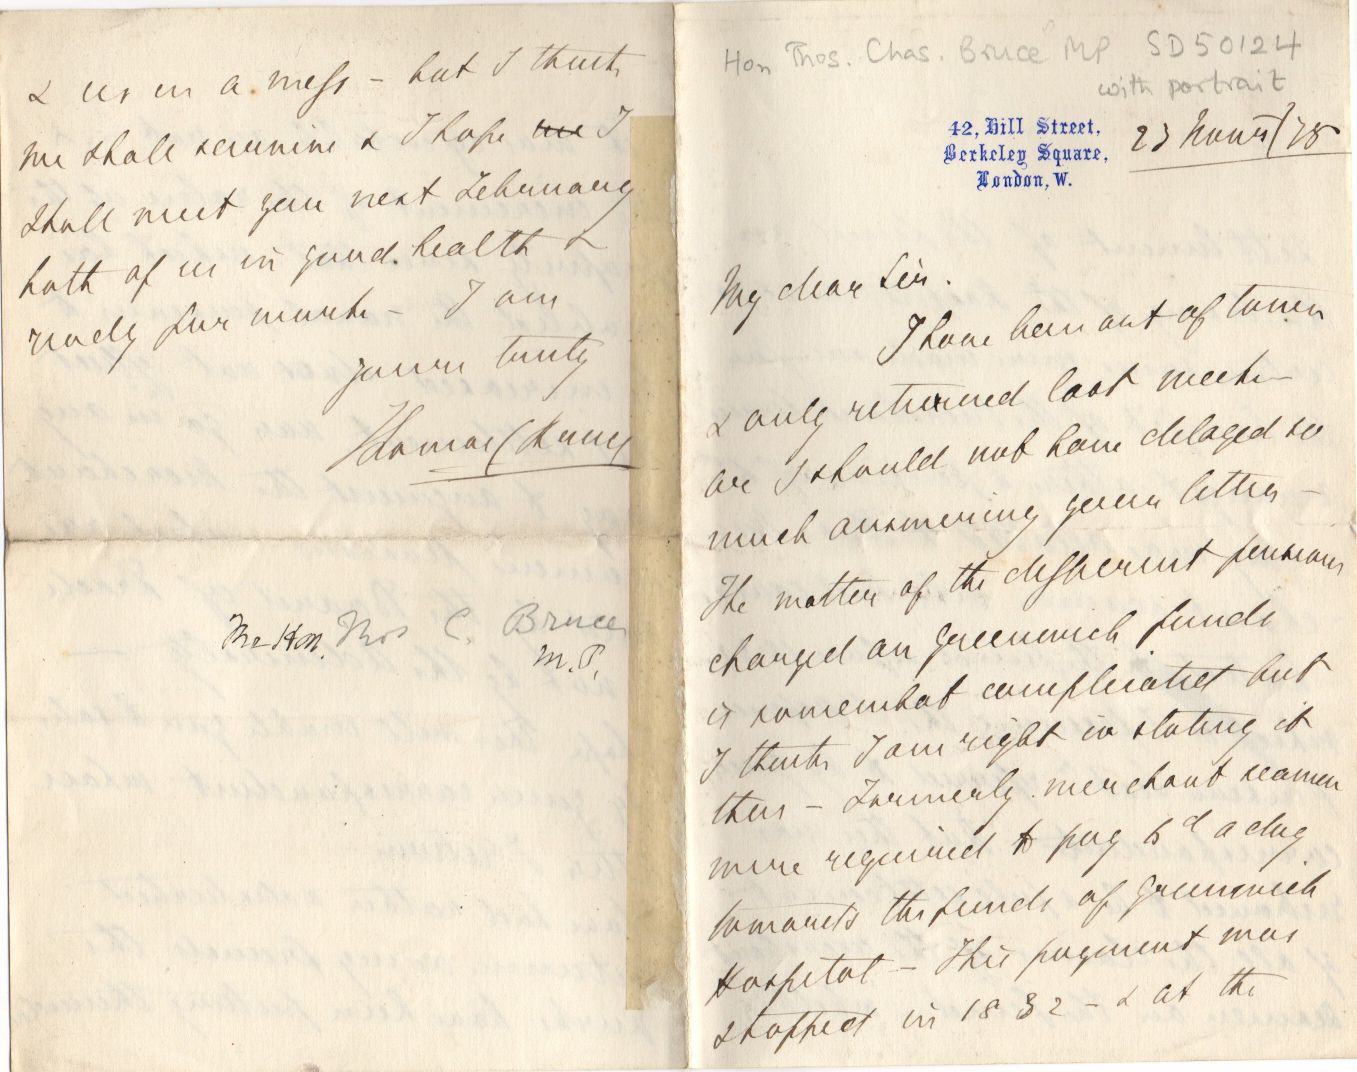 Hon Thos. Chas. Bruce MP SD50124
with portrait
42, Hill Street,
Berkeley Square,
London, W.
23 Novr/75
My dear Sir.
I have been out of town
& only returned last week –
or I should not have delayed so
much answering your letter –
The matter of the different pensions
charged on Greenwich funds
is somewhat complicated but
I think I am right in stating it
thus – Formerly merchant seamen
were required to pay 6d a day
towards the funds of Greenwich
Hospital – This payment was
stopped in 1832 – & at the
& us in a mess – but I think
we shall survive & I hope I
shall meet you next February
both of us in good health &
ready for work – I am
yours truly
Thomas C Bruce
The Hon. Thos C. Bruce
M.P.